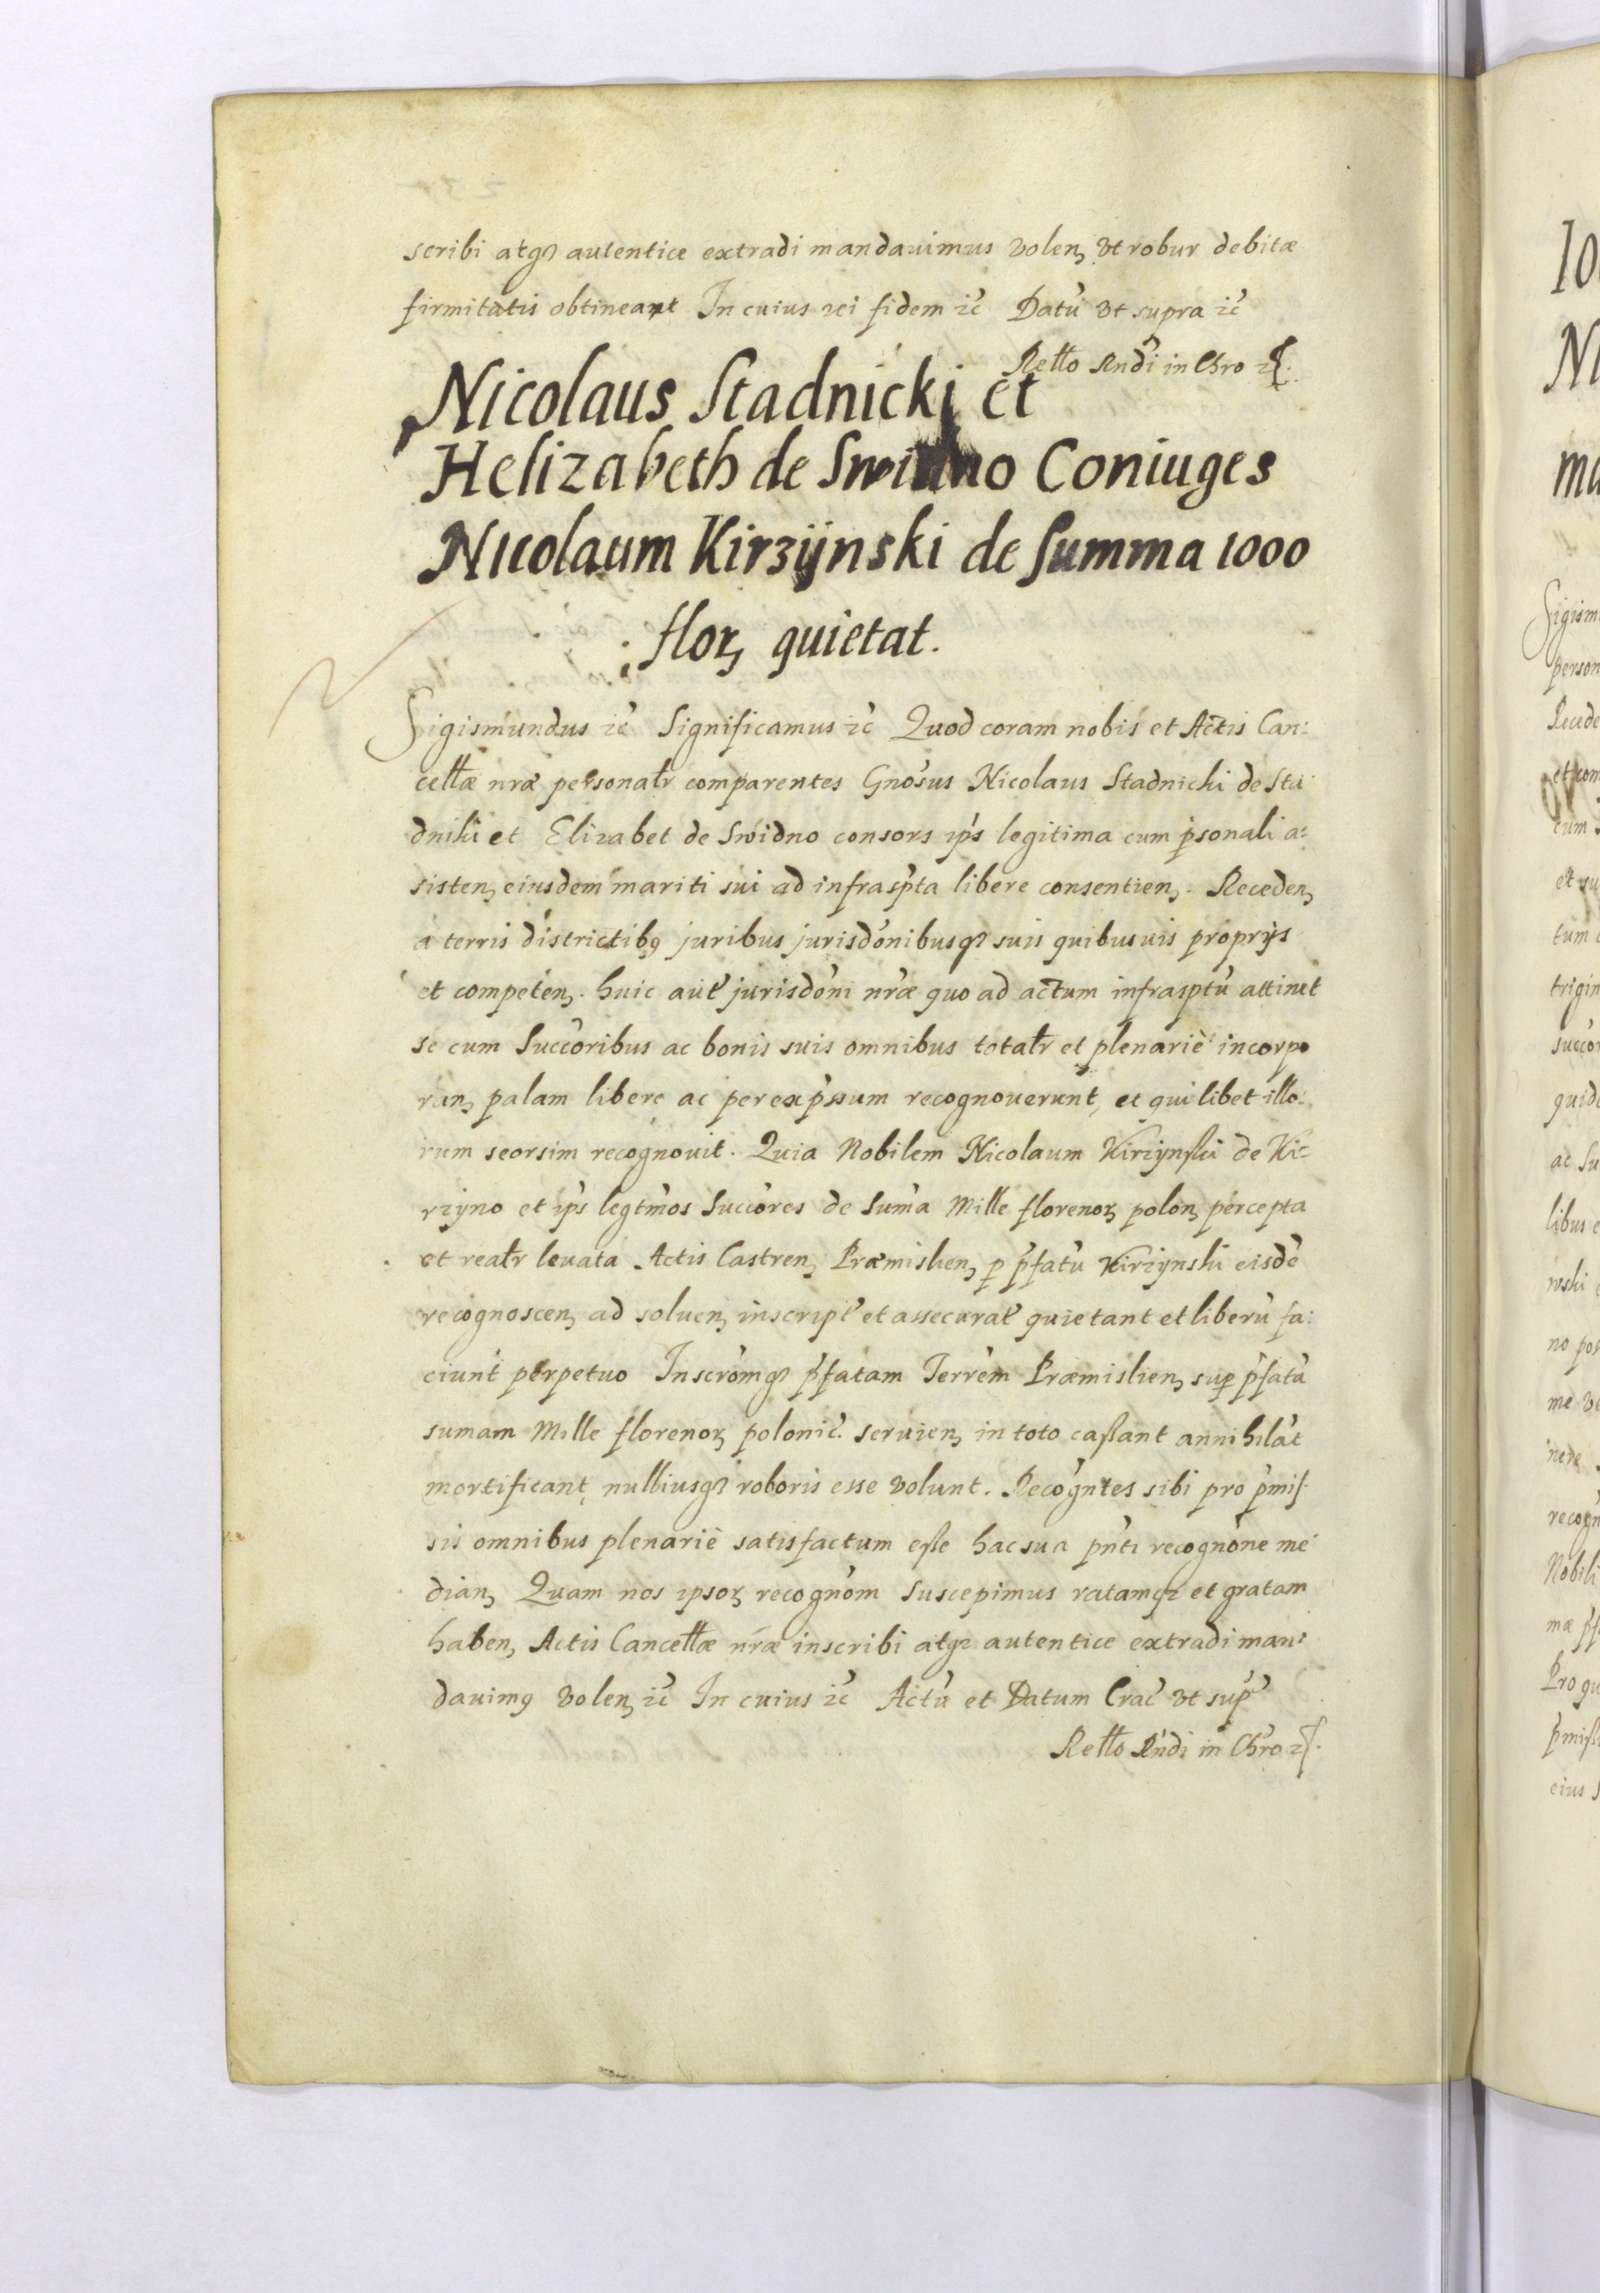 scribi atq₃ autentice extradi mandauimus volen₃ vt robur debitæ
firmitatis obtineant In cuius rei fidem ꝛc̃ Datũ vt supra ꝛc̃
Rełło Rndi in Chro ꝛ
Nicolaus Stadnicki et
Helizabeth de Swidno Coniuges
Nicolaum Kirzÿnski de Summa 1000
flor₃ quietat.
Sigismundus ꝛc̃ Significamus ꝛc̃ Quod coram nobis et Actis Can:
cełłæ nr̃æ personałr comparentes Gnõsus Nicolaus Stadnicki de Sta
dniki et Elizabet de Swidno consors ip̃s legitima cum p̃sonali a:
sisten₃ eiusdem mariti sui ad infrasp̃ta libere consentien₃. Receden₃
a terris districtibꝯ juribus jurisdõnibusq₃ suis quibusuis proprijs
et competen₃. huic aut̃ jurisdõni nr̃æ quo ad actum infrasptũ attinet
se cum Succõribus ac bonis suis omnibus totałr et plenariè incorpo
ran₃ palam libere ac per exp̃ssum recognouerunt, et quilibet illo:
rum seorsim recognouit. Quia Nobilem Nicolaum Kirzynski de Ki:
rzyno et ip̃s legtm̃os Succõres de Sum̃a Mille florenor₃ polon₃ percepta
et reałr leuata Actis Castren₃ Præmislien₃ ꝑ p̃fatũ Kirzynski eisdẽ
recognoscen₃ ad soluen₃ inscript̃ et assecurat̃ quietant et liberũ fa:
ciunt perpetuo Inscrõmq₃ p̃fatam Terrẽm Præmislien₃ sup̱ p̃fatã
sumam Mille florenor₃ polonic̃. seruien₃ in toto caſsant annihilãt
mortificant, nulliusq₃ roboris esse volunt. Recogñtes sibi pro p̃miſ:
sis omnibus plenariè satisfactum eſse hac sua pñti recognõne me
dian₃ Quam nos ipsor₃ recognõm suscepimus ratamq₃ et gratam
haben₃ Actis Cancełłæ nr̃æ inscribi atq₃ autentice extradi man:
dauimꝯ volen₃ ꝛc̃ In cuius ꝛc̃ Actũ et Datum Crac̃ vt sup̃
Rełło Rñdi in Chr̃o ꝛ